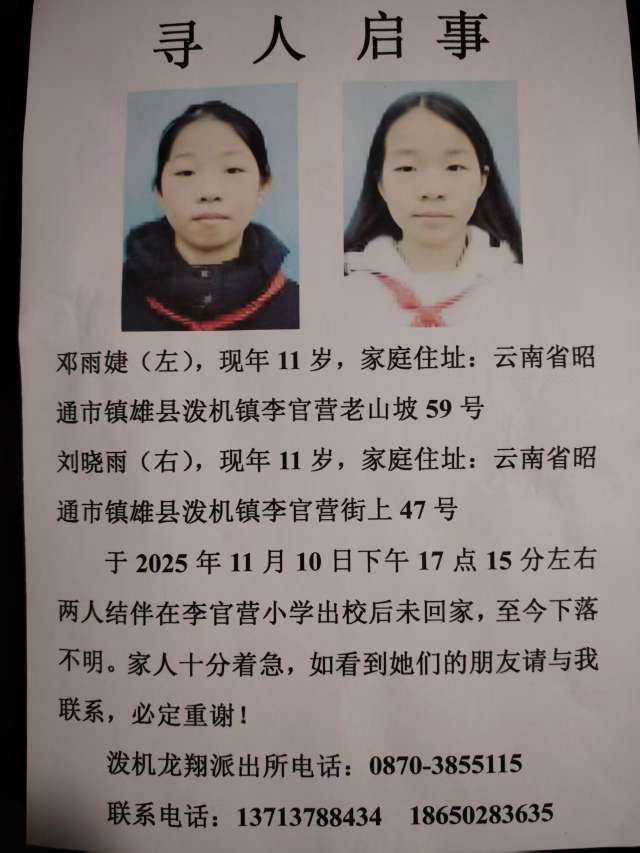 寻人启事
邓雨婕（左），现年 11 岁，家庭住址：云南省昭
通市镇雄县泼机镇李官营老山坡 59 号
刘晓雨（右），现年 11 岁，家庭住址：云南省昭
通市镇雄县泼机镇李官营街上 47 号
于 2025 年 11 月 10 日下午 17 点 15 分左右
两人结伴在李官营小学出校后未回家，至今下落
不明。家人十分着急，如看到她们的朋友请与我
联系，必定重谢！
泼机龙翔派出所电话：0870-3855115
联系电话：13713788434 18650283635